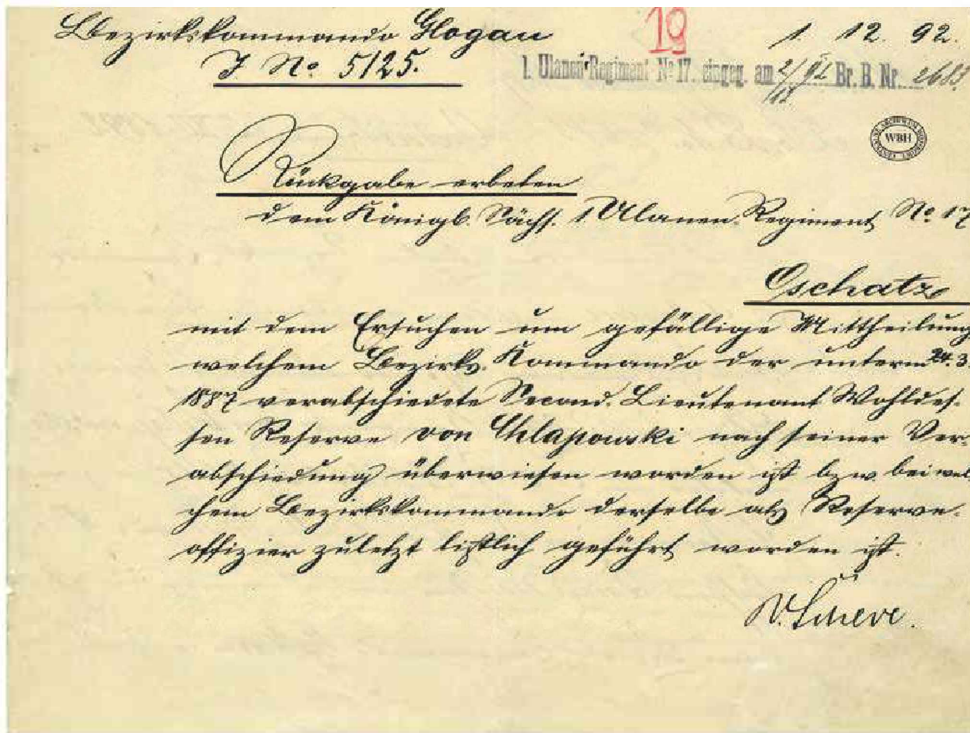 Bezirkskommando Glogau
19
1. 12. 92.
J No 5125.
1. Ulanen-Regiment No 17. eingeg. am 2/12 92 Br. B. Nr. 2683
WBH
Rückgabe erbeten
dem Königl. Sächs. 1. Ulanen-Regiment No 17
Oschatz
mit dem Ersuchen um gefällige Mittheilung
welchem Bezirks-Kommando der unterm 24. 3.
1887 verabschiedete Second-Lieutenant Wohldes-
sen Reserve von Chlapowski nach seiner Ver-
abschiedung überwiesen worden ist bzw. bei wel-
chem Bezirkskommando derselbe als Reserve-
offizier zuletzt listlich geführt worden ist.
v. Scheve.